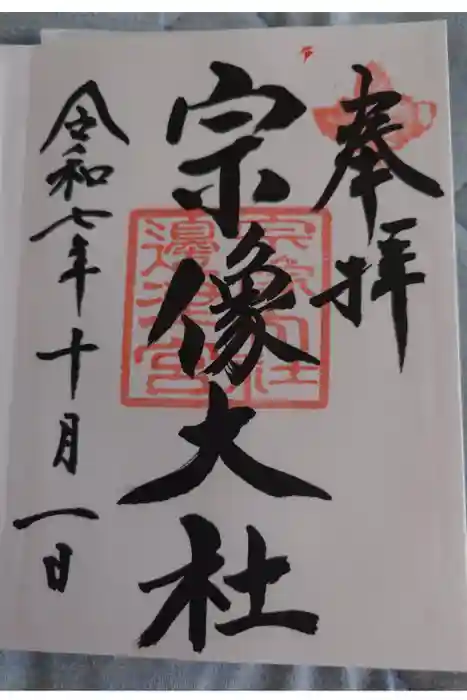 奉拝
宗像大社
令和七年十月一日
宗像大社
邊津宮